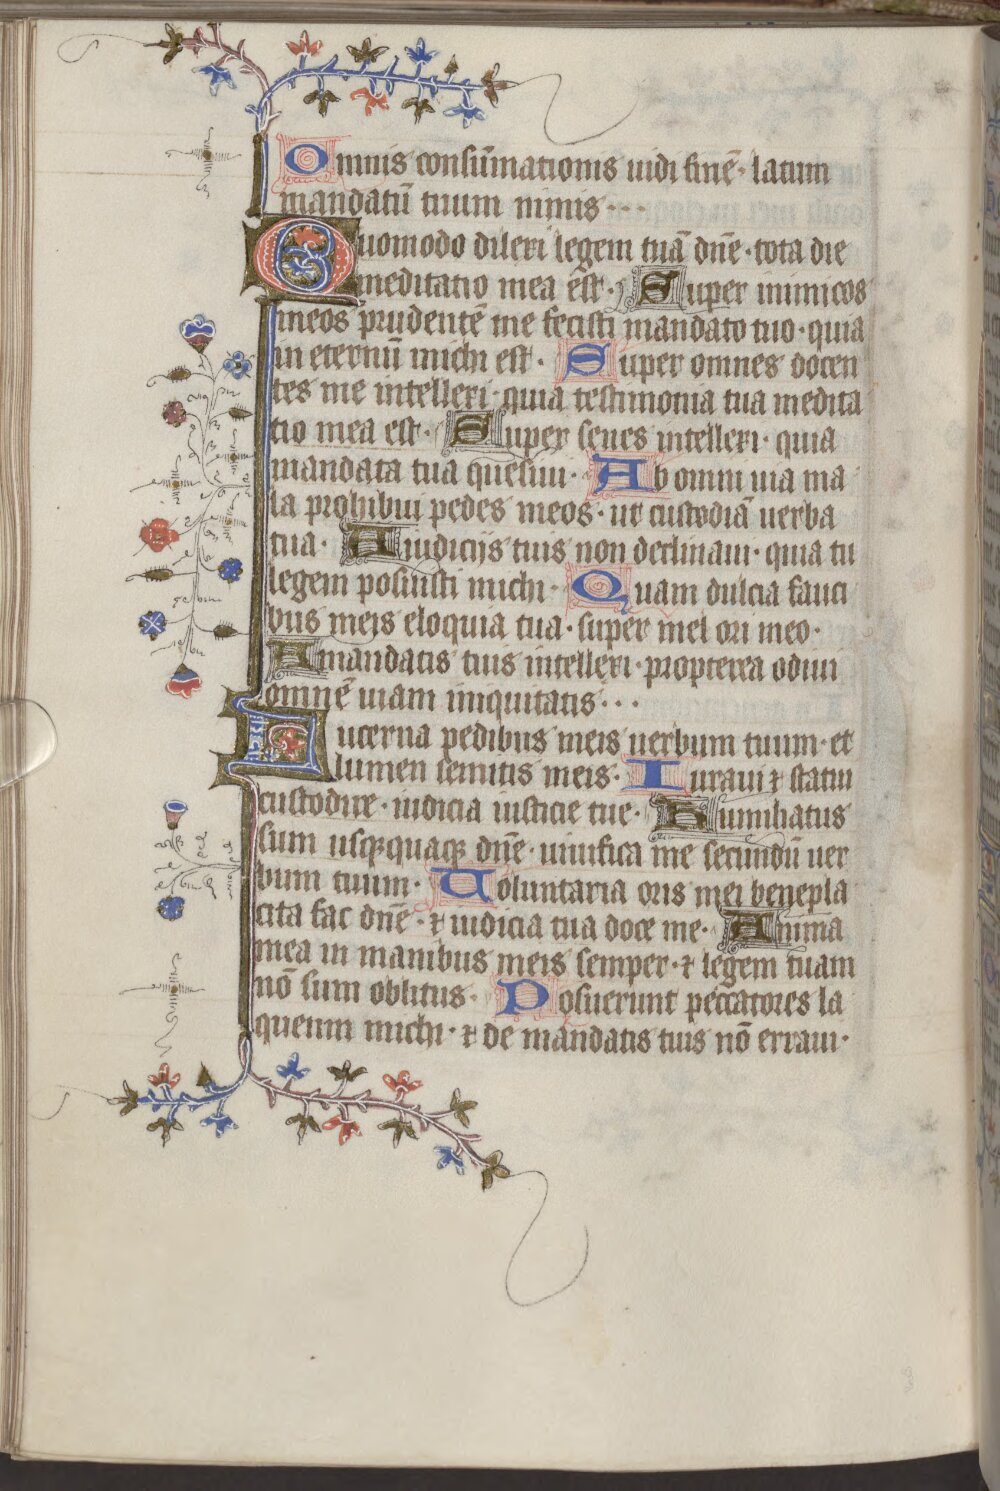 Omnis consūmationis uidi finē· latum
mandatū tuum nimis···
Quomodo dilexi legem tuā dnē· tota die
meditatio mea ēst· Super inimicos
meos prudentē me fecisti mandato tuo· quia
in eternū michi est· Super omnes docen
tes me intellexi· quia testimonia tua medita
tio mea est· Super senes intellexi· quia
mandata tua quesiui· Ab omni uia ma
la prohibui pedes meos· ut custodiā uerba
tua· A iudicijs tuis non declinaui· quia tu
legem posuisti michi· Quam dulcia fauci
bus meis eloquia tua· super mel ori meo·
A mandatis tuis intellexi· propterea odiui
omnē uiam iniquitatis···
Lucerna pedibus meis uerbum tuum· et
lumen semitis meis· Iuraui ⁊ statui
custodire· iudicia iusticie tue· Humiliatus
sum usqꝫquaqꝫ dnē· uiuifica me secundū uer
bum tuum· Uoluntaria oris mei benepla
cita fac dnē· ⁊ iudicia tua doce me· Anima
mea in manibus meis semper· ⁊ legem tuam
nō sum oblitus· Posuerunt peccatores la
queum michi· ⁊ de mandatis tuis nō erraui·